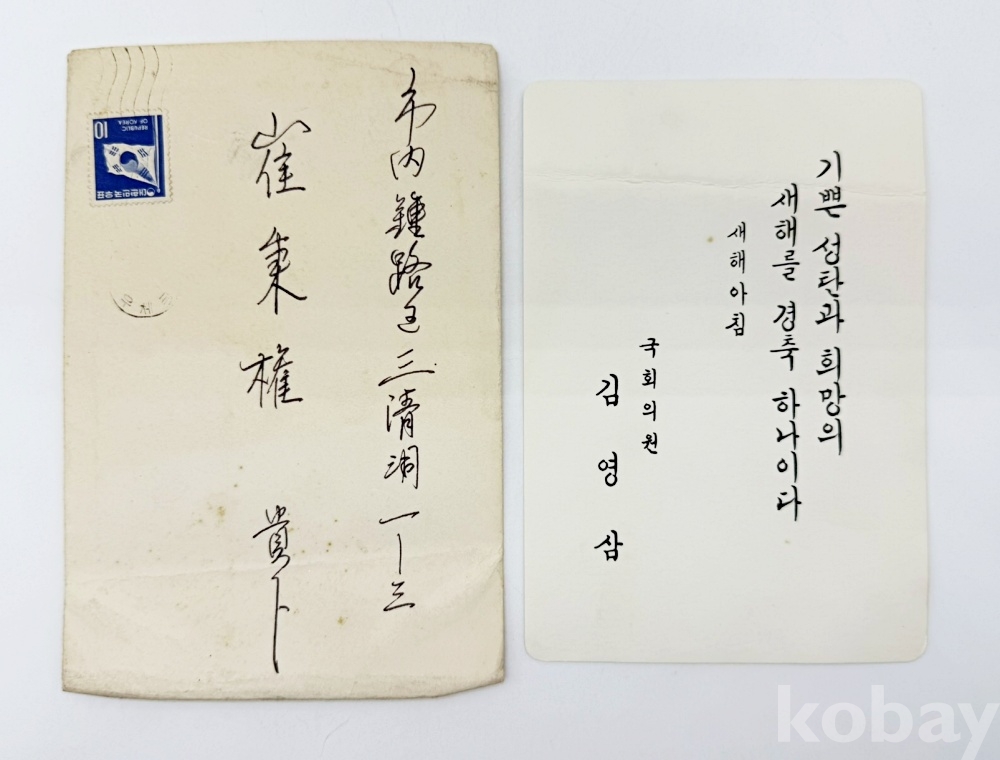 市內鍾路區三清洞一ー三
崔東權 貴下
10
REPUBLIC
OF KOREA
대한민국우표
기쁜 성탄과 희망의
새해를 경축 하나이다
새해아침
국회의원
김영삼
kobay